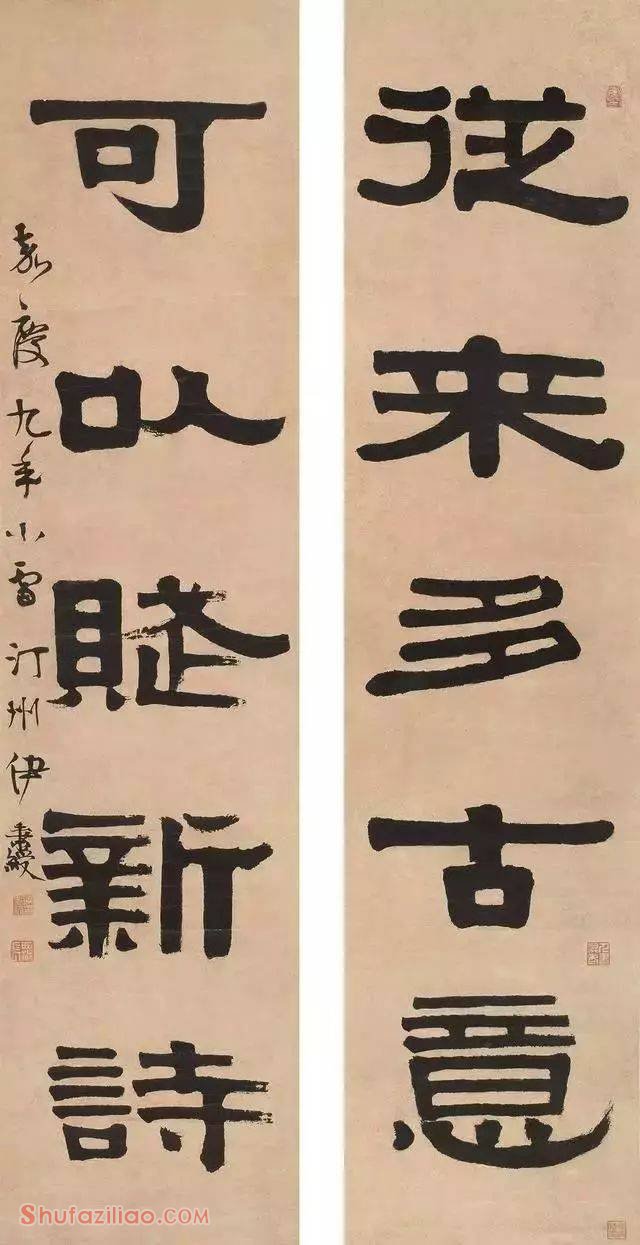 從来多古意
可以賦新詩
嘉慶九年小雪汀州伊秉綬
Shufaziliao.com